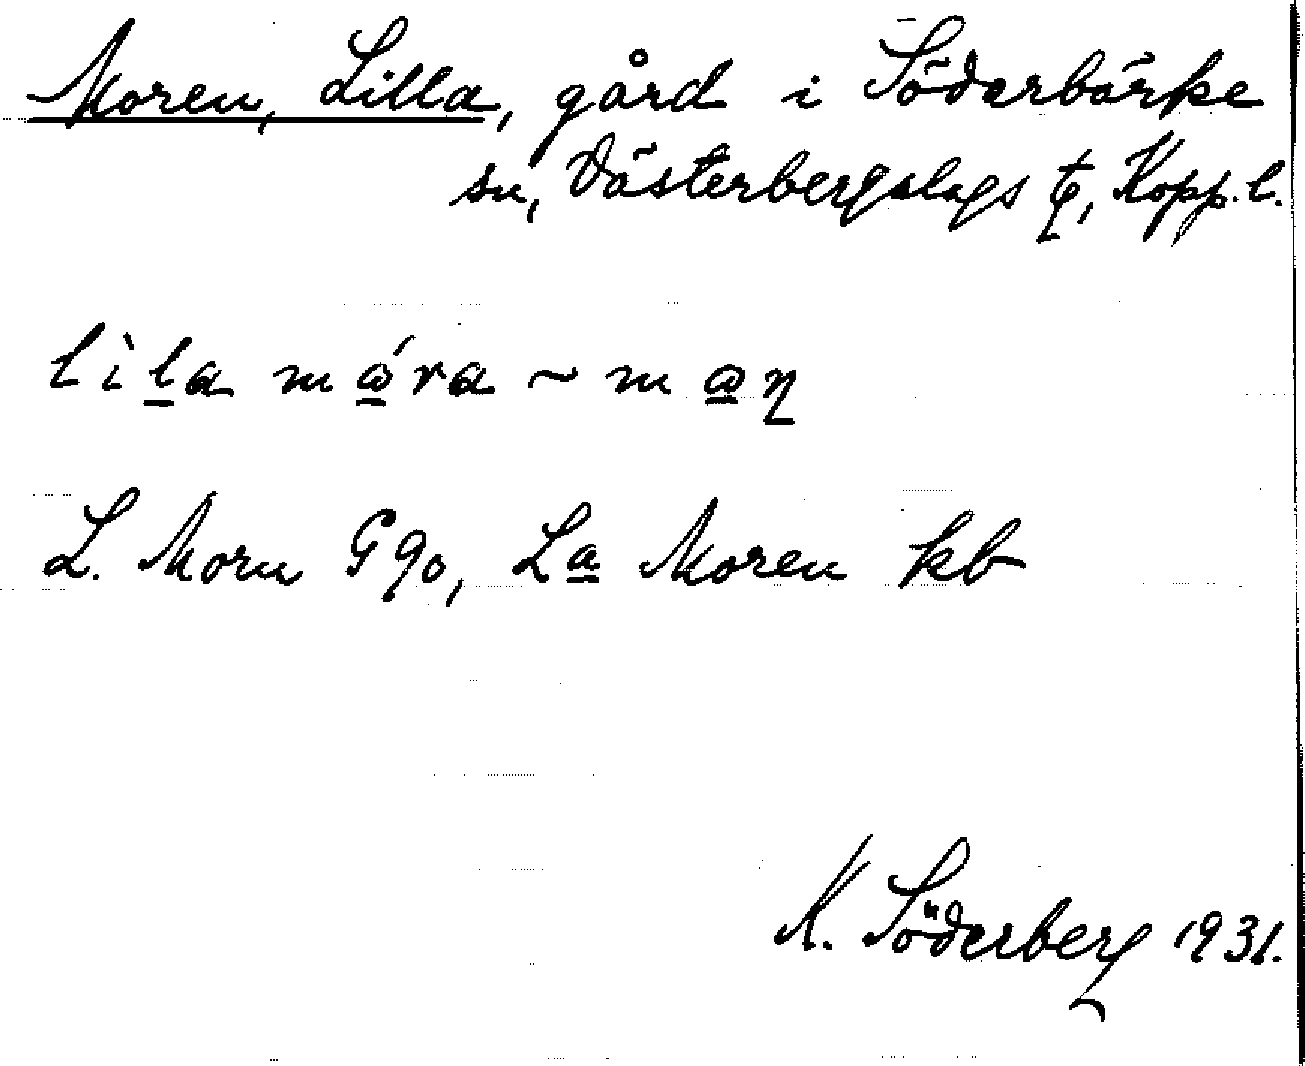 Moren, Lilla, gård i Söderbärke
sn, Västerbergslags tg, Kopp. l.
lìla mǻra ~ maŋ
L. Morn G90, La Moren kb
K. Söderberg 1931.